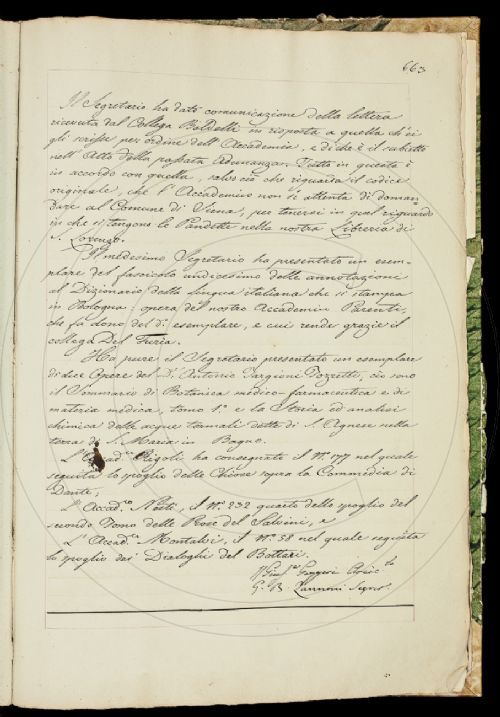 663
Il Segretario ha dato comunicazione della lettera
ricevuta dal Collega Boldetti in risposta a quella ch'ei
gli scrisse per ordine dell'Accademia, e di che è il subietto
nell'Atto della passata Adunanza. Tutto in questa è
in accordo con quella, salvo ciò che riguarda il codice
originale, che l'Accademico non si attenta di doman-
dare al Comune di Siena, per tenersi in quel riguardo
in che si tengono le Pandette nella nostra Libreria di
S. Lorenzo.
Il medesimo Segretario ha presentato un esem-
plare del fascicolo undicesimo delle annotazioni
al Dizionario della lingua italiana che si stampa
in Bologna: opera del nostro Accademico Parenti,
che fa dono del d.º esemplare, e cui rende grazie il
collega Del Furia.
Ha pure il Segretario presentato un esemplare
di due Opere del Antonio Targioni Tozzetti, ciò sono
il Sommario di Botanica medico-farmaceutica e di
materia medica, tomo 1.º e la Storia ed analisi
chimica delle acque termali dette di S. Agnese nella
terra di S. Maria in Bagno.
L'Accad.co Rigoli ha consegnato il N.º 177 nel quale
seguita lo spoglio delle Chiose sopra la Commedia di
Dante;
L'Accad.co Nesti, il N.º 232 quarto dello spoglio del
secondo Tomo delle Prose del Salvini, e
L'Accad.co Montalvi, il N.º 38 nel quale seguita
lo spoglio dei Dialoghi del Bottari.
G. B. Zannoni Segret.º